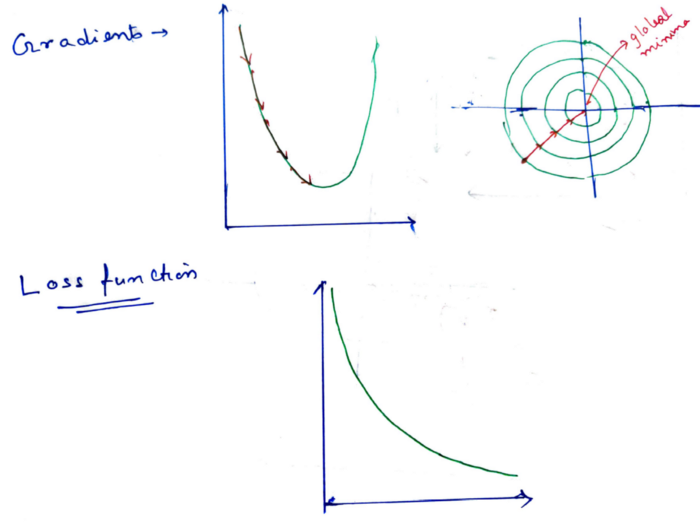 Gradients →
global
minima
Loss function